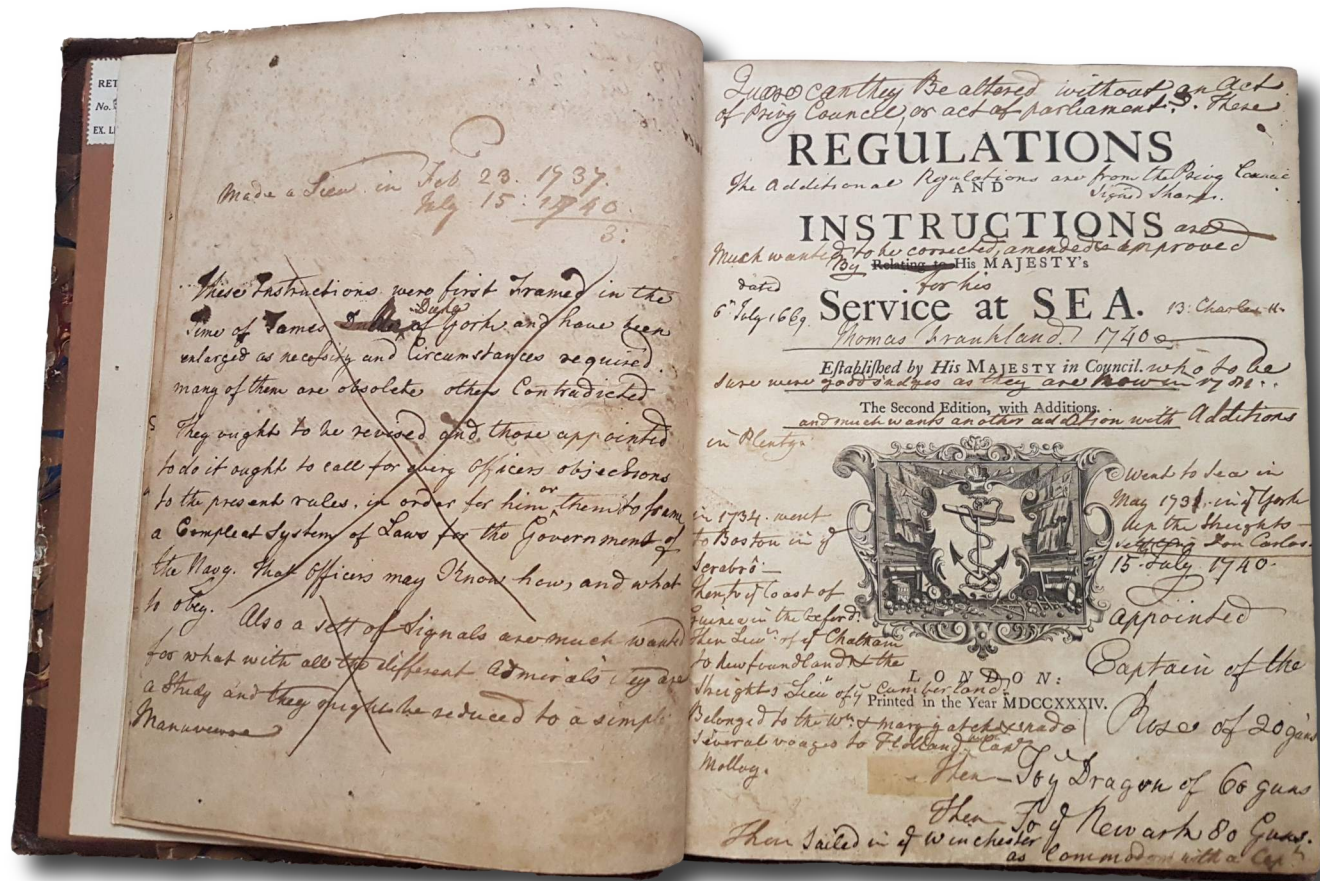 RET
No.
EX. L
Made a Lieu in Feb 23. 1737.
July 15: 1740
3:
These Instructions were first Framed in the
Time of James Duke of York and have been
enlarged as necessity and Circumstances required.
many of them are obsolete others Contradicted
They ought to be revised and those appointed
to do it ought to call for every Officers objections
to the present rules, in order for him or them to frame
a Compleat System of Laws for the Government of
the Navy. That Officers may Know how, and what
to obey.
Also a sett of Signals are much wanted
for what with all the different Admirals they are
a Study and they might be reduced to a simple
Manuvre
Quære can they Be altered without an Act
of Privy Council, or act of parliament. These
REGULATIONS
The Additional Regulations are from the Privy Council
AND
Signed Sharpe.
INSTRUCTIONS are
Much wanted to be corrected, amended & approved
By Relating to His MAJESTY's
for his
dated
6th July 1669. Service at SEA. 13: Charles II.
Thomas Frankland 1740
Established by His MAJESTY in Council. who to be
sure were good judges as they are now in 1781.
The Second Edition, with Additions.
and much wants another addition with Additions
in Plenty
Went to Sea in
May 1731. in ye York
up the Streights
Don Carlos.
15 July 1740.
appointed
Captain of the
Rose of 20 guns
in 1734. went
to Boston in ye
Scarbro
then to ye Coast of
Guinea in the Oxford.
then Lieu of ye Chatham
to Newfoundland & the
Streights Lieu of ye Cumberland.
Belonged to the Wm & mary yatch & made
several voages to Holland Capn
Molloy.
LONDON:
Printed in the Year MDCCXXXIV.
Then To ye Dragon of 60 guns
Then To ye Newark 80 Guns.
Then Sailed in ye Winchester
as Commodore with a Capn